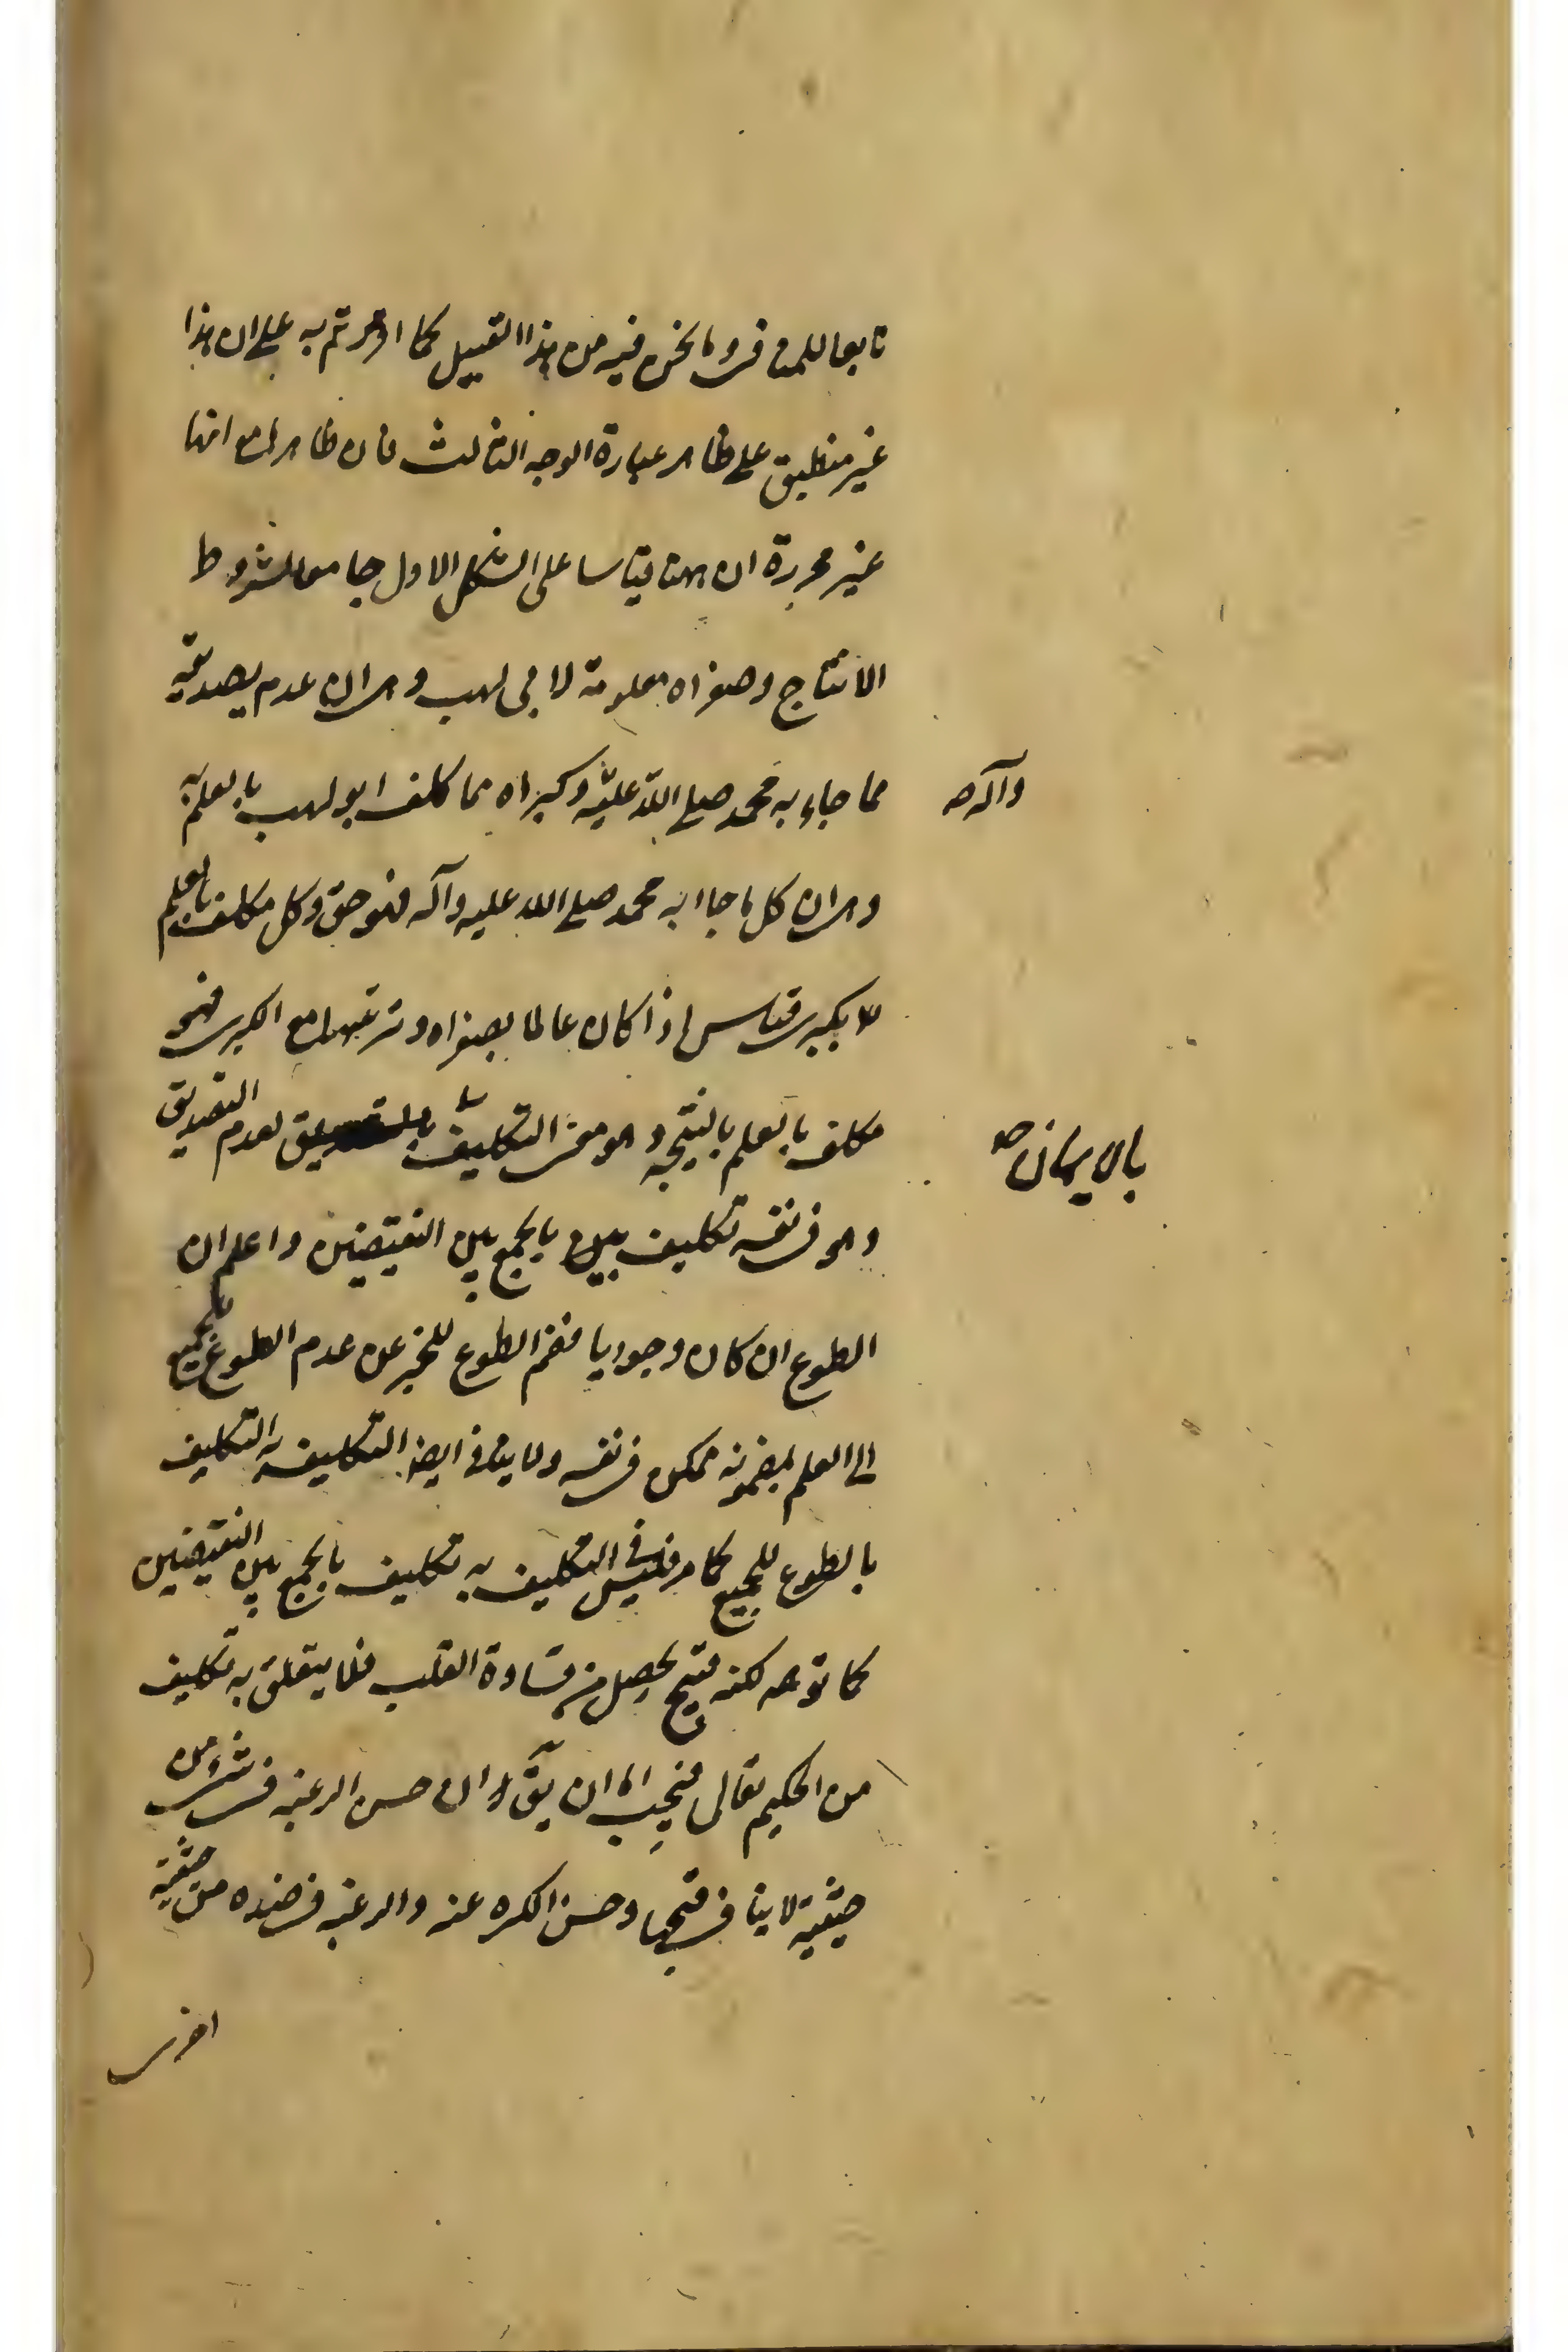 تابعا للمنافي وما نحن فيه من هذا القبيل كما اقررتم به على ان هذا
غير منطبق على ظاهر عبارة الوجه الثالث فان ظاهرها مع انها
غير محررة ان هنا قياسا على الشكل الاول جامعا لشروط
الانتاج وصغراه معلومة لابي لهب وهي ان عدم تصديقه
مما جاء به محمد صلى الله عليه وكبراه مما كلف ابو لهب بالعلم به
وآله صح
وهي ان كل ما جاء به محمد صلى الله عليه وآله فهو حق وكل مكلف بالعلم
بكبرى قياس اذا كان عالما بصغراه وترتيبها مع الكبرى فهو
مكلف بالعلم بالنتيجة وهو معنى التكليف بعدم التصديق
بالايمان صح
وهو في نفسه تكليف بالجمع بين النقيضين واعلم ان
الطوع ان كان وجوديا فضم الطوع للخبر عن عدم الطوع بالجميع
الى العلم بمضمونه ممكن في نفسه ولا ينافي ايضا التكليف به التكليف
بالطوع للجميع كما مر فليس في التكليف به تكليف بالجمع بين النقيضين
كما توهم لكنه قبيح يحصل من قساوة القلب فلا يتعلق به تكليف
من الحكيم تعالى فيجب اما ان يق ان حسن الرغبة في شيء من
حيثية لا ينافي قبحها وحسن الكره عنه والرغبة في ضده من حيثية
اخرى